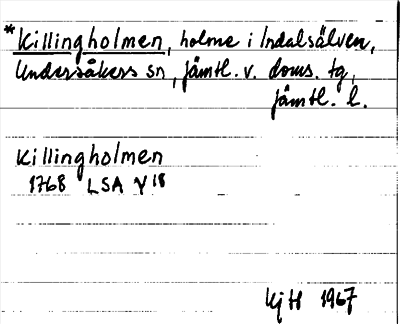 *Killingholmen, holme i Indalsälven,
Undersåkers sn, Jämtl. v. doms. tg,
Jämtl. l.
Killingholmen
1768 LSA Y18
KjH 1967